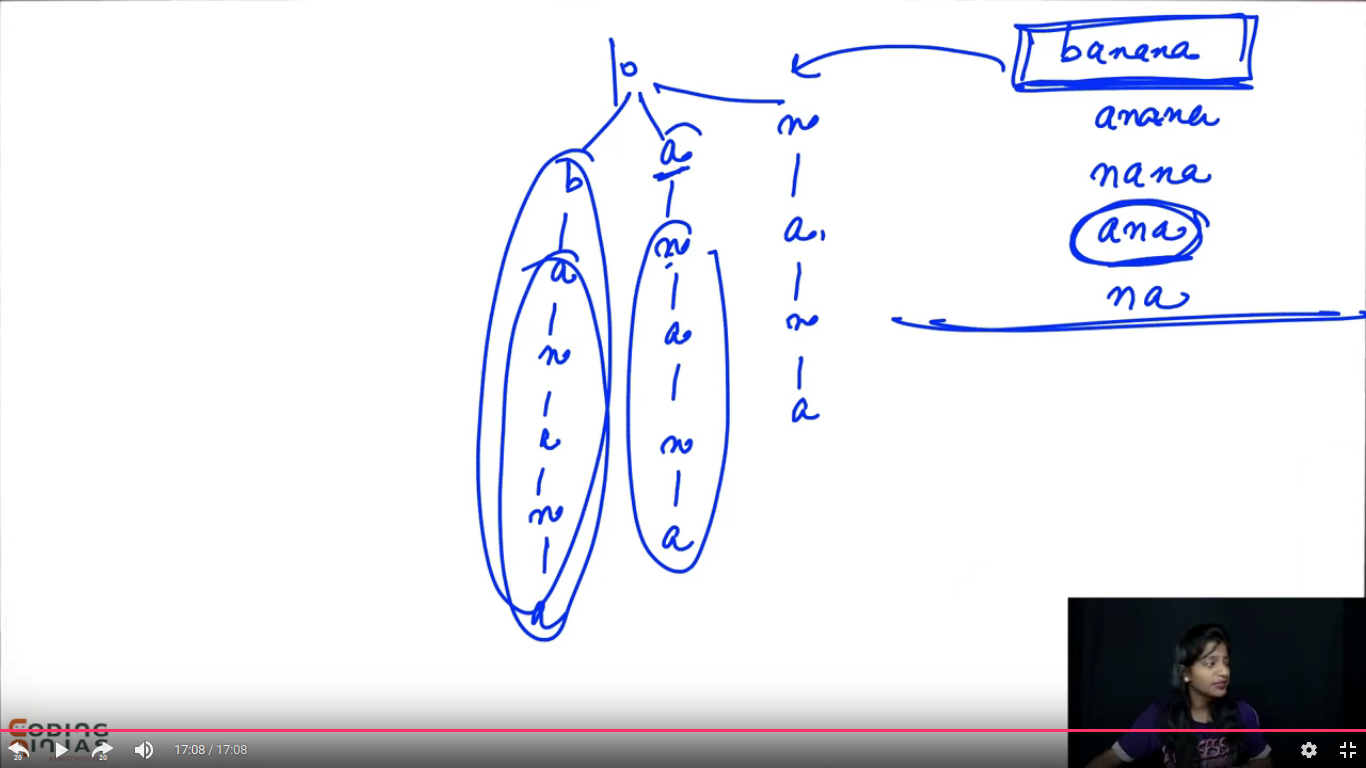 banana
anana
nana
ana
na
b
b a n
a n a
n a n
a n a
n a
a
CODING
NINJAS
20 20 17:08 / 17:08